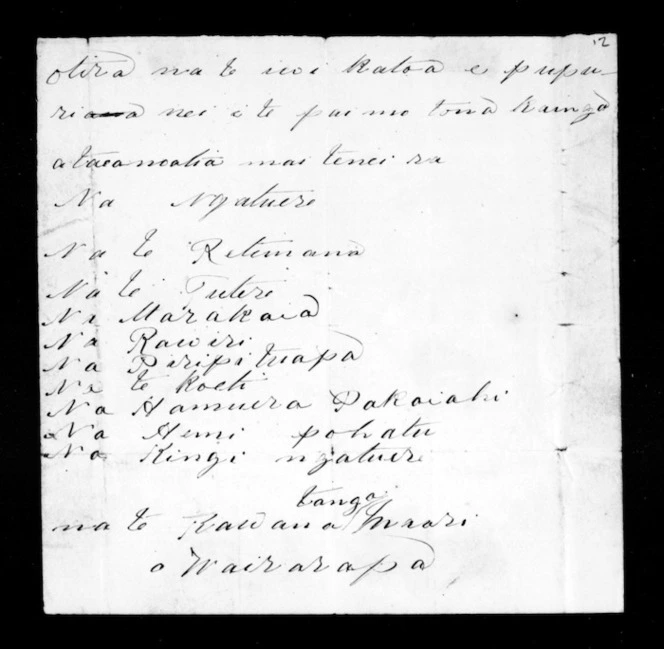 12
otira na te iwi katoa e pupu-
ria nei i te pai mo tona kainga
mai tenei ra
Na Ngatuere
Na te Retimana
Na te Tutere
Na Marakaia
Na Rawiri
Na Piripi tuapa
Na te Koeti
Na Hamuera Pakaiahi
Na Hemi pohatu
Na Kingi ngatuere
tanga
na te Kawana Maori
o Wairarapa